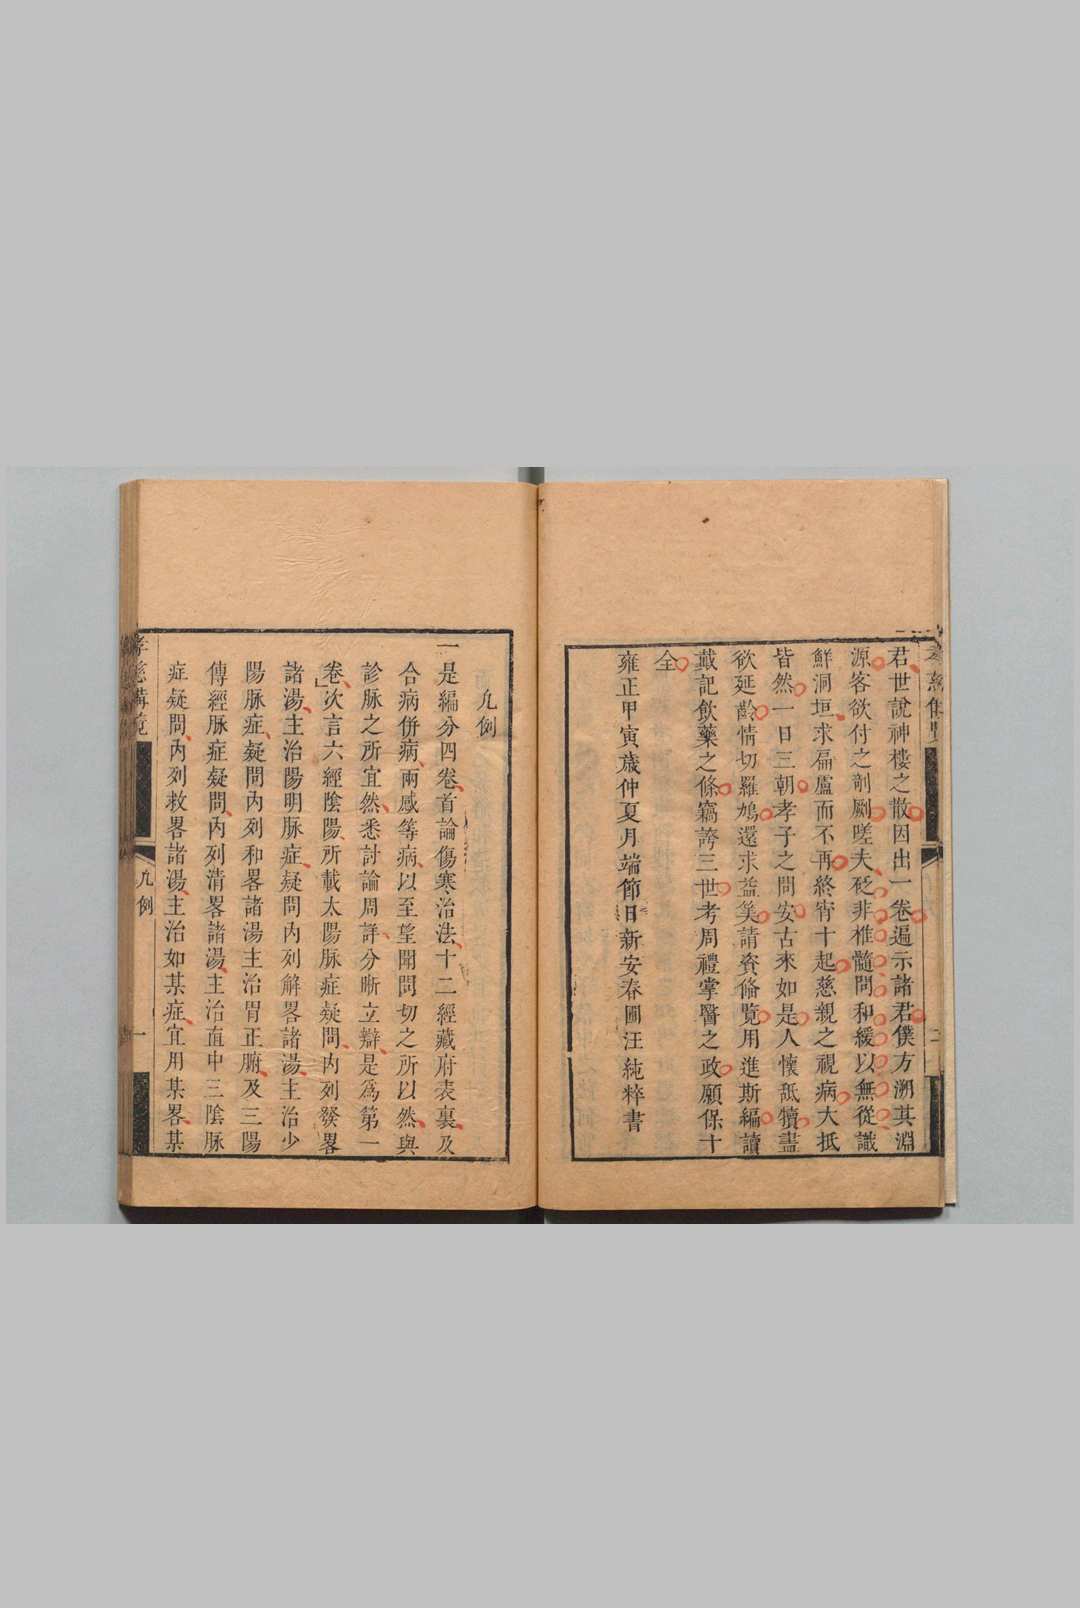 君世說神樓之散因出一卷遍示諸君僕方溯其淵
源客欲付之剞劂嗟夫砭非椎髓問和緩以無從識
鮮洞垣求扁盧而不再終宵十起慈親之視病大抵
皆然一日三朝孝子之問安古來如是人懷舐犢盡
欲延齡情切羅鳩還求益筭請資脩覽用進斯編讀
戴記飲藥之條竊誇三世考周禮掌醫之政願保十
全
雍正甲寅歲仲夏月端節日新安春圃汪純粹書
凡例
一是編分四卷首論傷寒治法十二經藏府表裏及
合病併病兩感等病以至望聞問切之所以然與
診脉之所宜然悉討論周詳分晰立辯是為第一
卷次言六經陰陽所載太陽脉症疑問內列發畧
諸湯主治陽明脉症疑問內列解畧諸湯主治少
陽脉症疑問內列和畧諸湯主治胃正腑及三陽
傳經脉症疑問內列清畧諸湯主治直中三陰脉
症疑問內列救畧諸湯主治如某症宜用某畧某
孝慈備覽
凡例
一